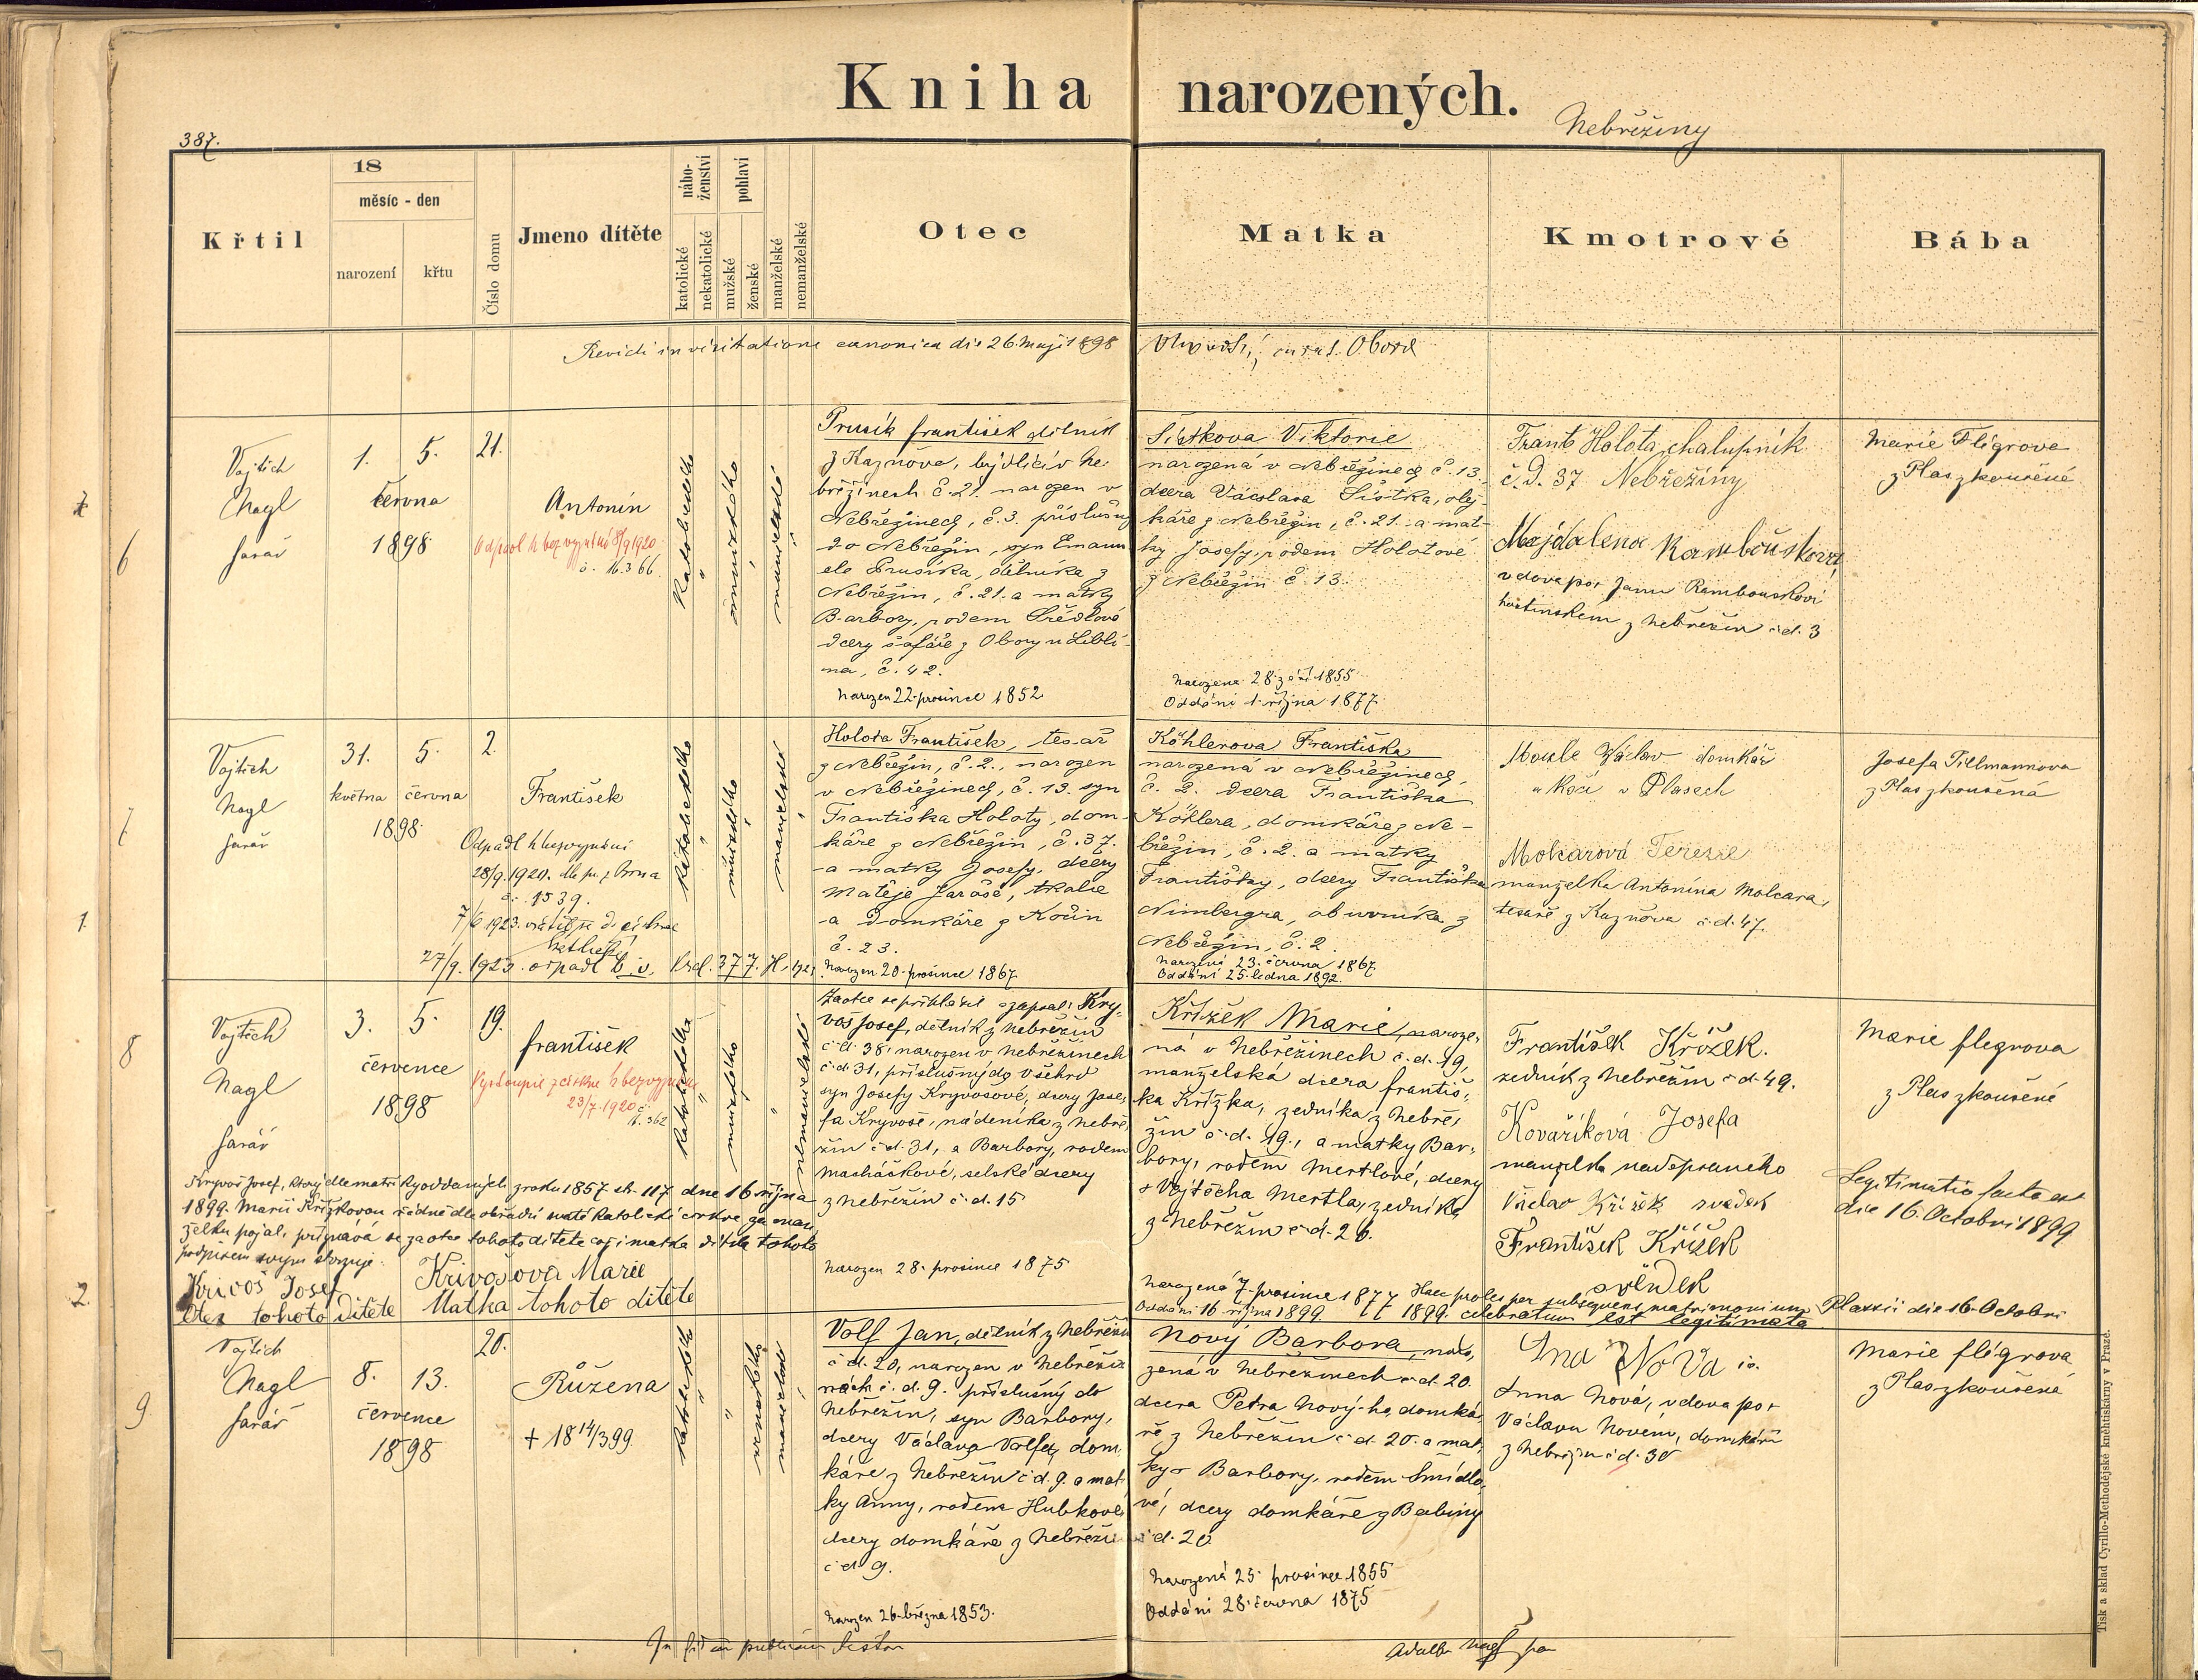 Kniha narozených.
Nebřežiny
387.
Křtil
18
měsíc - den
narození
křtu
Číslo domu
Jmeno dítěte
nábo-
ženství
katolické
nekatolické
pohlaví
mužské
ženské
manželské
nemanželské
Otec
Matka
Kmotrové
Bába
Revidi in visitatione canonica die 26. Maji 1898
6
Vojtěch
Nagl
farář
1. 5.
června
1898
21.
Antonín
Odpadl k bezvyznání 8/9 1920
č. 16.366.
katolického
mužského
manželské
Prusík František dělník
z Kaznova, bydlící v Ne-
břežinech č. 21. narozen v
Nebřežinech, č. 3. příslušný
do Nebřežin, syn Emanu-
ele Prusíka, dělníka z
Nebřežin, č. 21. a matky
Barbory, rodem
dcery šafáře z Obory u Liblí-
na, č. 42.
Narozen 22. prosince 1852
Viktorie
narozená v Nebřežinech č. 13.
dcera Václava
káře z Nebřežin, č. 21. a mat-
ky Josefy, rodem Holotové
z Nebřežin č. 13.
Narozena 28. září 1855
Oddáni 1. října 1877.
Frant. Holota, chalupník
č. d. 37 Nebřežiny
Majdalena Rambousková,
vdova po † Janu Rambouskovi
hostinském z Nebřežin č. d. 3
Marie Flégrova
z Plas zkoušené
7
1.
Vojtěch
Nagl
farář
31. 5.
května června
1898
2.
František
Odpadl k bezvyznání
28/9. 1920. dle př. z Brna
č. 1539.
7/6 1923. vrátil se do církve
katolické
27/9. 1923. odpadl b. v.
katolického
mužského
manželské
Holota František, tesař
z Nebřežin, č. 2., narozen
v Nebřežinech, č. 13. syn
Františka Holoty, dom-
káře z Nebřežin, č. 37.
a matky Josefy, dcery
Matěje Jaroše, tkalce
a domkáře z Kočín
č. 23.
Narozen 20. prosince 1867
Köhlerova Františka
narozená v Nebřežinech,
č. 2. dcera Františka
Köhlera, domkáře z Ne-
břežin, č. 2. a matky
Františky, dcery Františka
Nimbergra, obuvníka z
Nebřežin, č. 2.
Narozená 23. června 1867
Oddáni 25. ledna 1892.
Václav domkář
v Plasech
Molcarová Terezie
manželka Antonína Molcara,
tesaře z Kaznova č. d. 47.
Josefa Tillmannova
z Plas zkoušená
8
2.
Vojtěch
Nagl
farář
3. 5.
července
1898
19.
František
Vystoupil z církve k bezvyznání
23/7. 1920 č.
16.362
katolického
mužského
nemanželské
Za otce se přihlásil a zapsal: Kry-
voš Josef, dělník z Nebřežin
č. d. 38, narozen v Nebřežinech
č. d. 31, příslušný do Všehrd
syn Josefy Kryvošové, dcery Jose-
fa Kryvoše, nádeníka z Nebře-
žin č. d. 31, a Barbory, rodem
Macháčkové, selské dcery
z Nebřežin č. d. 15
Narozen 28. prosince 1875
Křížek Marie, naroze-
ná v Nebřežinech č. d. 19,
manželská dcera Františ-
ka Křížka, zedníka z Nebře-
žin č. d. 19., a matky Bar-
bory, rodem Mertlové, dcery
† Vojtěcha Mertla, zedníka
z Nebřežin č. d. 26.
Narozená 7. prosince 1877
Oddáni 16. října 1899.
František Křížek.
zedník z Nebřežin č. d. 49.
Kovaříková Josefa
manželka nadepsaného
Václav Křížek svědek
František Křížek
svědek
Marie Flegrova
z Plas zkoušené
Legitimatio facta est
die 16. Octobri 1899
Kryvoš Josef, který dle matriky oddaných z roku 1857 str. 117 dne 16 října
1899. Marii Křížkovou řádně dle obřadů svaté katolické církve za man-
želku pojal, přiznává se za otce tohoto dítěte což i matka dítěte tohoto
podpisem svým stvrzuje.
Krivoš Josef
Otec tohoto dítěte
Krivošova Marie
Matka tohoto dítěte
Haec proles per subsequens matrimonium Plassii die 16. Octobri
1899. celebratum est legitimata
9
Vojtěch
Nagl
farář
8. 13.
července
1898
20.
Růžena
† 18 14/3 99.
katolického
ženského
manželské
Volf Jan, dělník z Nebřežin
č. d. 20, narozen v Nebřeži-
nách č. d. 9. příslušný do
Nebřežin, syn Barbory,
dcery Václava Volfa, dom-
káře z Nebřežin č. d. 9. a mat-
ky Anny, rodem Hubkové,
dcery domkáře z Nebřežin
č. d. 9.
Narozen 26. března 1853.
Nový Barbora, naro-
zená v Nebřežinech č. d. 20.
dcera Petra Nový-ho, domká-
ře z Nebřežin č. d. 20. a mat-
ky † Barbory, rodem Šmídlo-
vé, dcery domkáře z Babiny
č. d. 20
Narozená 25. prosince 1855
Oddáni 28. června 1875
Ana Nova
Anna Nová, vdova po †
Václavu Novém, domkáři
z Nebřežin č. d. 30
Marie Flégrova
z Plas zkoušené
In fidem publicam testor
Adalb. Nagl
Tisk a sklad Cyrillo-Methodějské knihtiskárny v Praze.